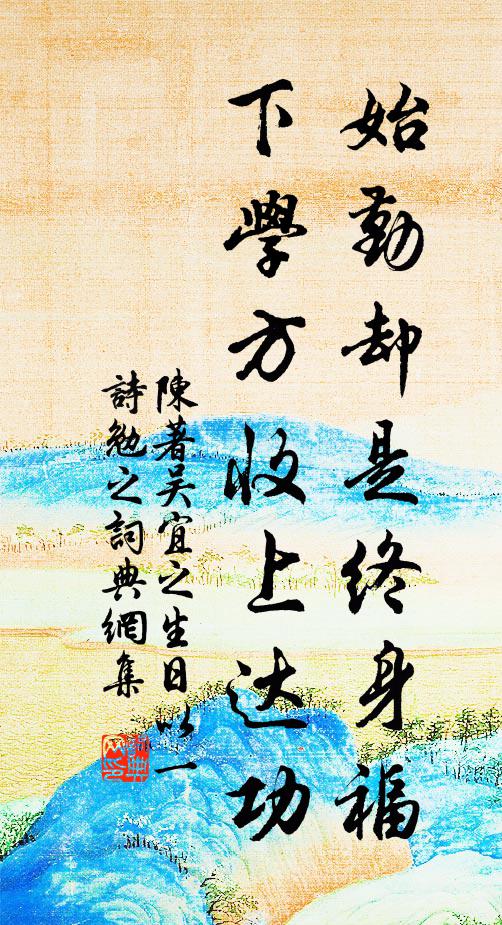 始勤却是终身福
下學方收上达功
陳著吴宜之生日以一
詩勉之詞典網集